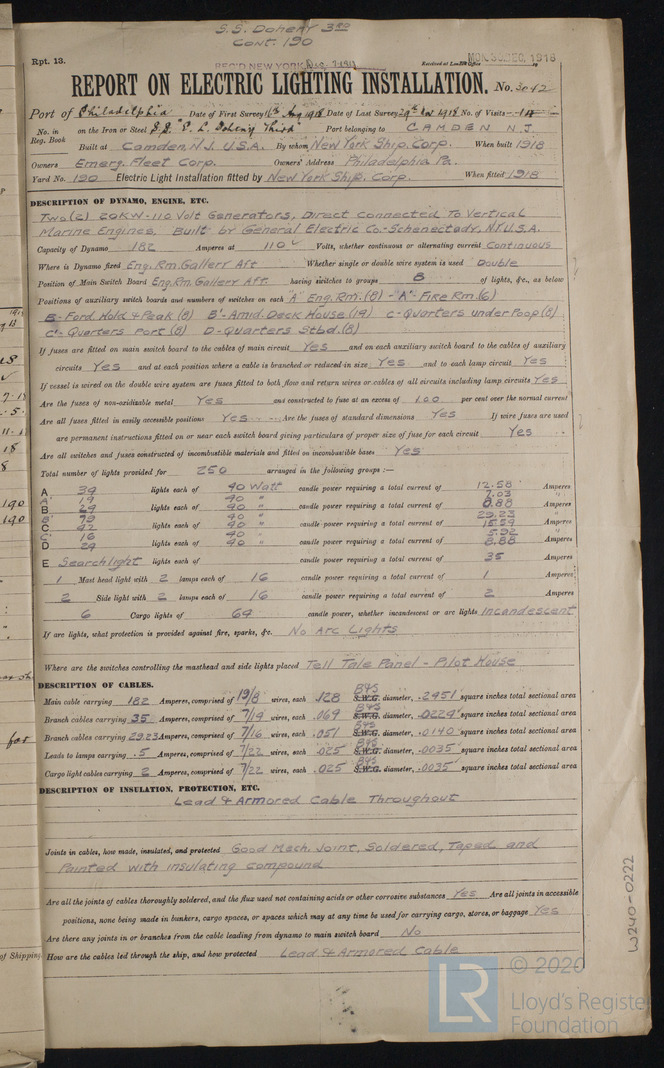 S.S. Doheny 3RD
Cont. 190
Rpt. 13.
REC'D NEW YORK Dec. 7-1918
Received at London Office
MON. 30. DEC. 1918
REPORT ON ELECTRIC LIGHTING INSTALLATION. No. 3042
Port of Philadelphia Date of First Survey Aug 1918 Date of Last Survey 29th Nov 1918 No. of Visits 14
No. in Reg. Book on the Iron or Steel S.S. "E. L. Doheny Third" Port belonging to CAMDEN N.J.
Built at Camden, N.J. U.S.A. By whom New York Ship. Corp. When built 1918
Owners Emerg. Fleet Corp. Owners' Address Philadelphia Pa.
Yard No. 190 Electric Light Installation fitted by New York Ship. Corp. When fitted 1918
DESCRIPTION OF DYNAMO, ENGINE, ETC.
Two (2) 20KW-110 Volt Generators, Direct Connected To Vertical
Marine Engines, Built by General Electric Co.- Schenectady, N.Y. U.S.A.
Capacity of Dynamo 182 Amperes at 110 Volts, whether continuous or alternating current Continuous
Where is Dynamo fixed Eng. Rm. Gallery Aft Whether single or double wire system is used Double
Position of Main Switch Board Eng. Rm. Gallery Aft. having switches to groups 8 of lights, &c., as below
Positions of auxiliary switch boards and numbers of switches on each A Eng. Rm. (8) - A'- Fire Rm (6)
B- Ford. Hold & Peak (8) B'- Amid. Deck House (19) C- Quarters under Poop (8)
C'- Quarters Port (8) D- Quarters Stbd. (8)
If fuses are fitted on main switch board to the cables of main circuit Yes and on each auxiliary switch board to the cables of auxiliary
circuits Yes and at each position where a cable is branched or reduced in size Yes and to each lamp circuit Yes
If vessel is wired on the double wire system are fuses fitted to both flow and return wires or cables of all circuits including lamp circuits Yes
Are the fuses of non-oxidizable metal Yes and constructed to fuse at an excess of 100 per cent over the normal current
Are all fuses fitted in easily accessible positions Yes Are the fuses of standard dimensions Yes If wire fuses are used
are permanent instructions fitted on or near each switch board giving particulars of proper size of fuse for each circuit Yes
Are all switches and fuses constructed of incombustible materials and fitted on incombustible bases Yes
Total number of lights provided for 250 arranged in the following groups :—
A 39 lights each of 40 Watt candle power requiring a total current of 12.58 Amperes
A' 19 40 " 7.03 "
B 29 lights each of 40 " candle power requiring a total current of 8.88 Amperes
B' 79 40 " 29.23 "
C 42 lights each of 40 " candle power requiring a total current of 15.54 Amperes
C' 16 40 " 5.92 "
D 24 lights each of 40 " candle power requiring a total current of 8.88 Amperes
E Searchlight lights each of candle power requiring a total current of 35 Amperes
1 Mast head light with 2 lamps each of 16 candle power requiring a total current of 1 Amperes
2 Side light with 2 lamps each of 16 candle power requiring a total current of 2 Amperes
6 Cargo lights of 64 candle power, whether incandescent or arc lights Incandescent
If arc lights, what protection is provided against fire, sparks, &c. No Arc Lights
Where are the switches controlling the masthead and side lights placed Tell Tale Panel - Pilot House
DESCRIPTION OF CABLES.
Main cable carrying 182 Amperes, comprised of 19/8 wires, each .128 B&S S.W.G. diameter, .2451 square inches total sectional area
Branch cables carrying 35 Amperes, comprised of 7/14 wires, each .064 B&S S.W.G. diameter, .0224 square inches total sectional area
Branch cables carrying 29.23 Amperes, comprised of 7/16 wires, each .051 B&S S.W.G. diameter, .0140 square inches total sectional area
Leads to lamps carrying .5 Amperes, comprised of 7/22 wires, each .025 B&S S.W.G. diameter, .0035 square inches total sectional area
Cargo light cables carrying 2 Amperes, comprised of 7/22 wires, each .025 B&S S.W.G. diameter, .0035 square inches total sectional area
DESCRIPTION OF INSULATION, PROTECTION, ETC.
Lead & Armored Cable Throughout
Joints in cables, how made, insulated, and protected Good Mech. Joint, Soldered, Taped and
Painted with insulating compound
Are all the joints of cables thoroughly soldered, and the flux used not containing acids or other corrosive substances Yes Are all joints in accessible
positions, none being made in bunkers, cargo spaces, or spaces which may at any time be used for carrying cargo, stores, or baggage Yes
Are there any joints in or branches from the cable leading from dynamo to main switch board No
How are the cables led through the ship, and how protected Lead & Armored Cable
W240-0222
of Shipping
for
190
190
LR © 2020
Lloyd's Register
Foundation